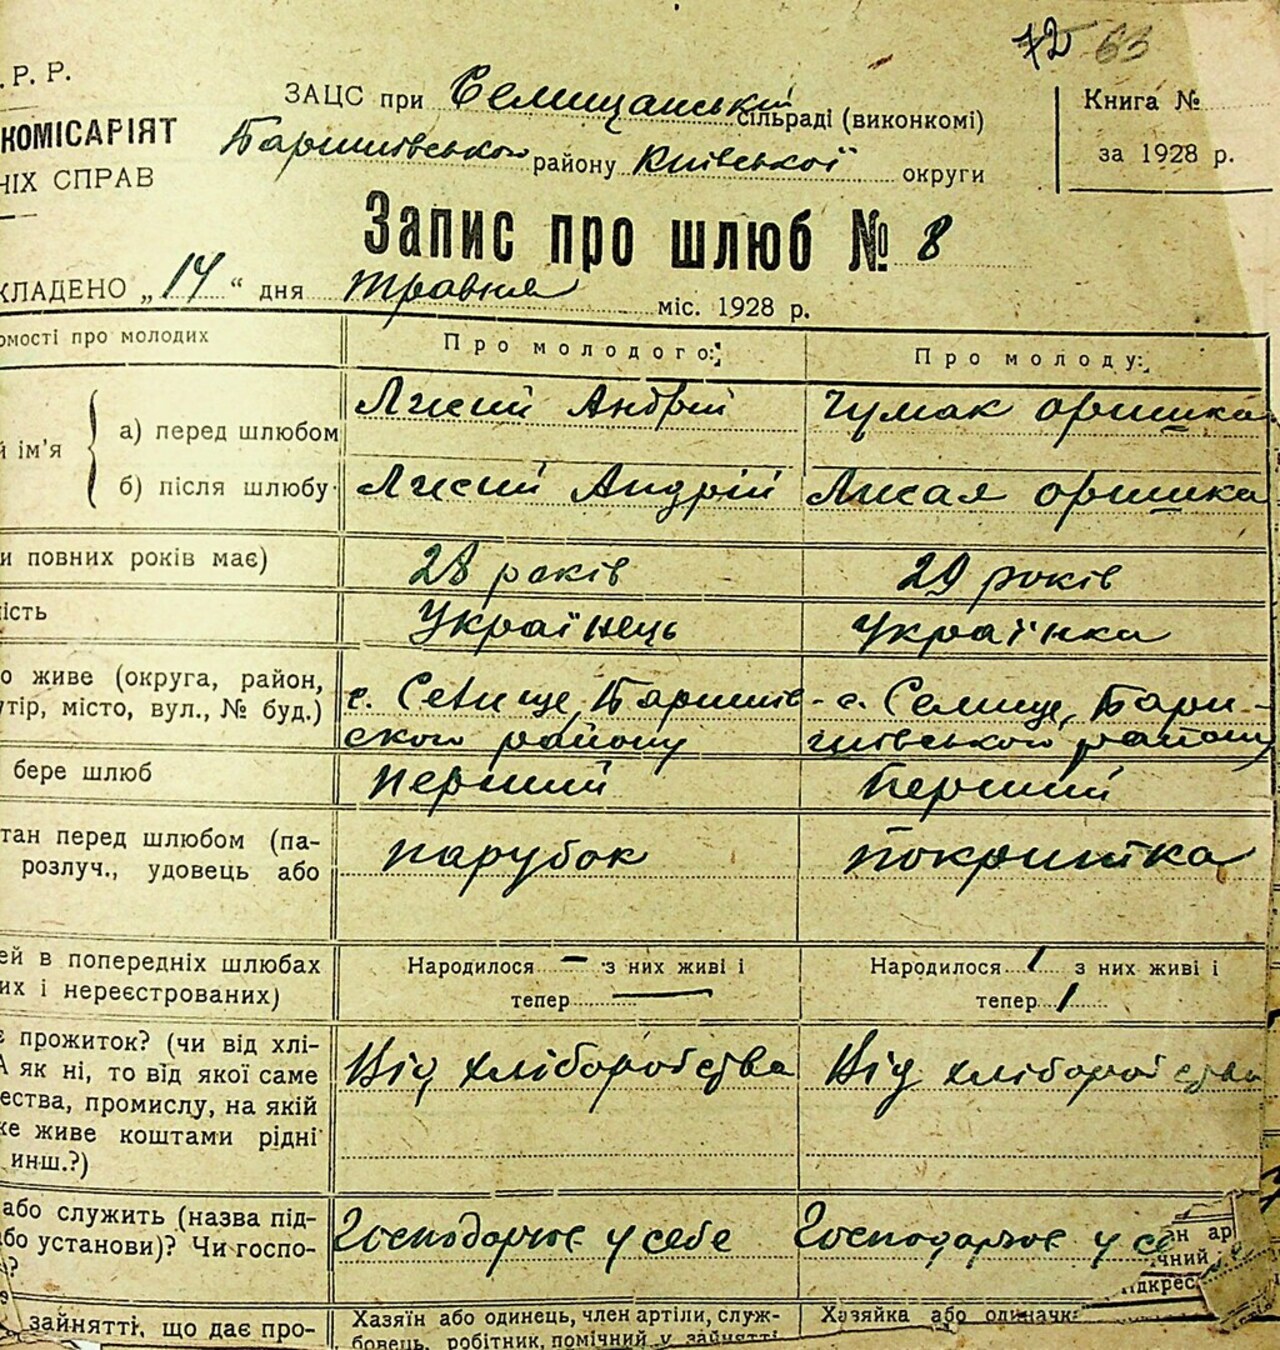 72 63
. Р. Р.
ЗАЦС при Селищанській сільраді (виконкомі)
Книга №
КОМІСАРІЯТ
Баришівського району Київської округи
за 1928 р.
НІХ СПРАВ
Запис про шлюб № 8
КЛАДЕНО „14“ дня травня міс. 1928 р.
омості про молодих
Про молодого:
Про молоду:
й ім'я
а) перед шлюбом
Лисий Андрій
Чумак Оришка
б) після шлюбу
Лисий Андрій
Лисая Оришка
и повних років має)
28 років
29 років
ість
Українець
Українка
о живе (округа, район,
утір, місто, вул., № буд.)
с. Селище, Баришів-
ского району
с. Селище, Бари-
шівського району
бере шлюб
перший
Перший
тан перед шлюбом (па-
розлуч., удовець або
парубок
покритка
ей в попередніх шлюбах
их і нереєстрованих)
Народилося — з них живі і
тепер —
Народилося 1 з них живі і
тепер 1
є прожиток? (чи від хлі-
А як ні, то від якої саме
ества, промислу, на якій
же живе коштами рідні
инш.?)
Від хліборобства
Від хліборобства
або служить (назва під-
бо установи)? Чи госпо-
?
Господарює у себе
Господарює у се
н ар
чний
ідкрес
зайнятті, що дає про-
Хазяїн або одинець, член артіли, служ-
бовець, робітник, помічний у зайнятті
Хазяйка або одиначк